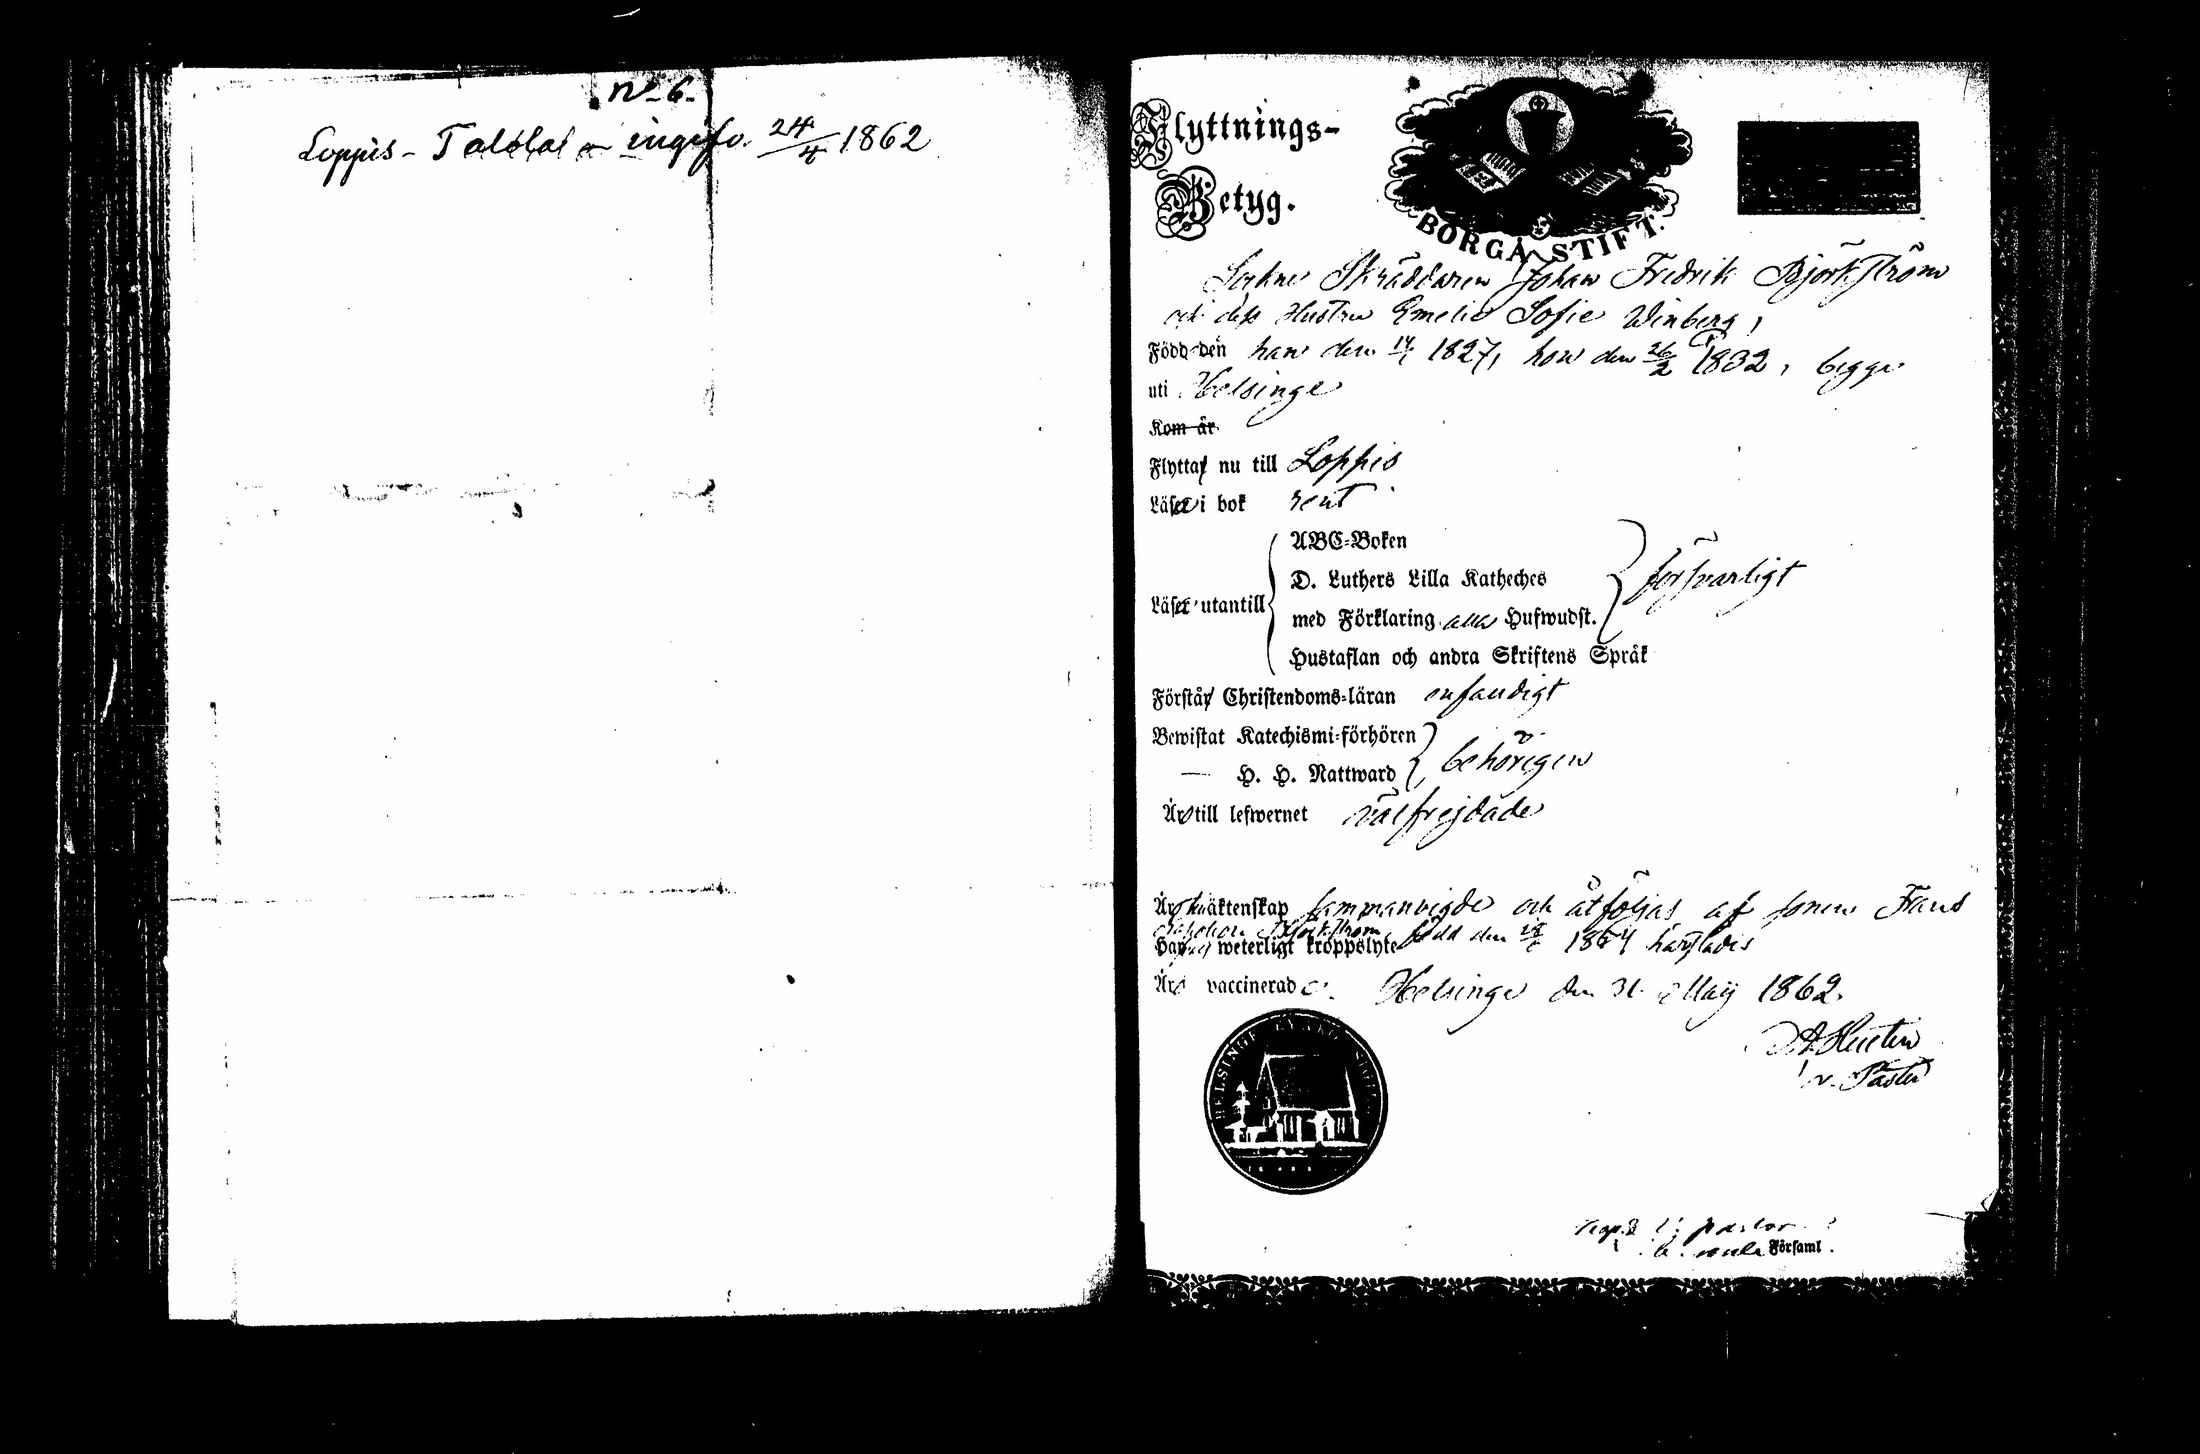 No 6.
Loppis - ingifv. 24/4 1862
Flyttnings-
Betyg.
BORGÅ STIFT.
Sockne Skräddaren Johan Fredrik Björkström
och dess Hustru Emelie Sofie Winberg,
Född den han den 1827, hon den 26/2 1832, begge
uti Helsinge
Kom år
Flyttar nu till Loppis
Läser i bok rent
ABC-Boken
D. Luthers Lilla Katheches
Läser utantill med Förklaring alla Hufwudst. försvarligt
Hustaflan och andra Skriftens Språk
Förstår Christendoms-läran enfaldigt
Bewistat Katechismi-förhören
— H. H. Nattward behörigen
Är till lefwernet välfrejdade
Är äktenskap sammanvigde och åtföljas af sonen Frans
Björkström född den 1854 härstädes
Har weterligt kroppslyte
Är vaccinerade. Helsinge den 31 Maij 1862.
v. Pastor
HELSINGE KYRKO SIGILL
pastor
Församl.